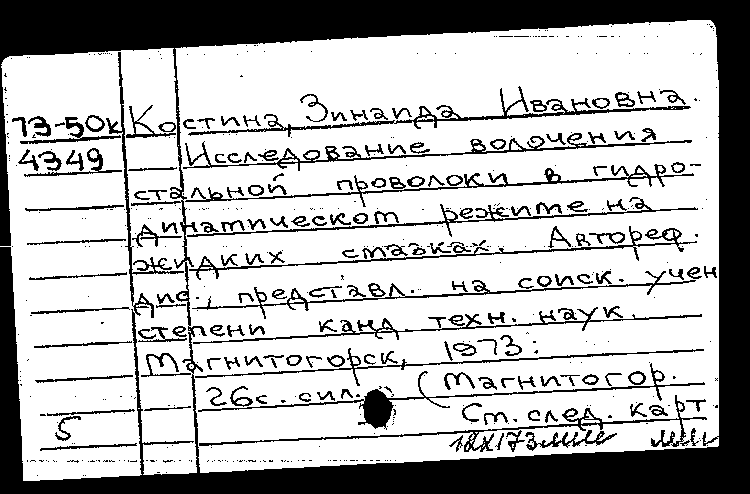 73-50к Костина, Зинаида Ивановна.
4349 Исследование волочения
стальной проволоки в гидро-
динамическом режиме на
жидких смазках. Автореф.
дис., представл. на соиск. учен
степени канд. техн. наук.
Магнитогорск, 1973.
26с. с ил. (Магнитогор.
5 См. след. карт.